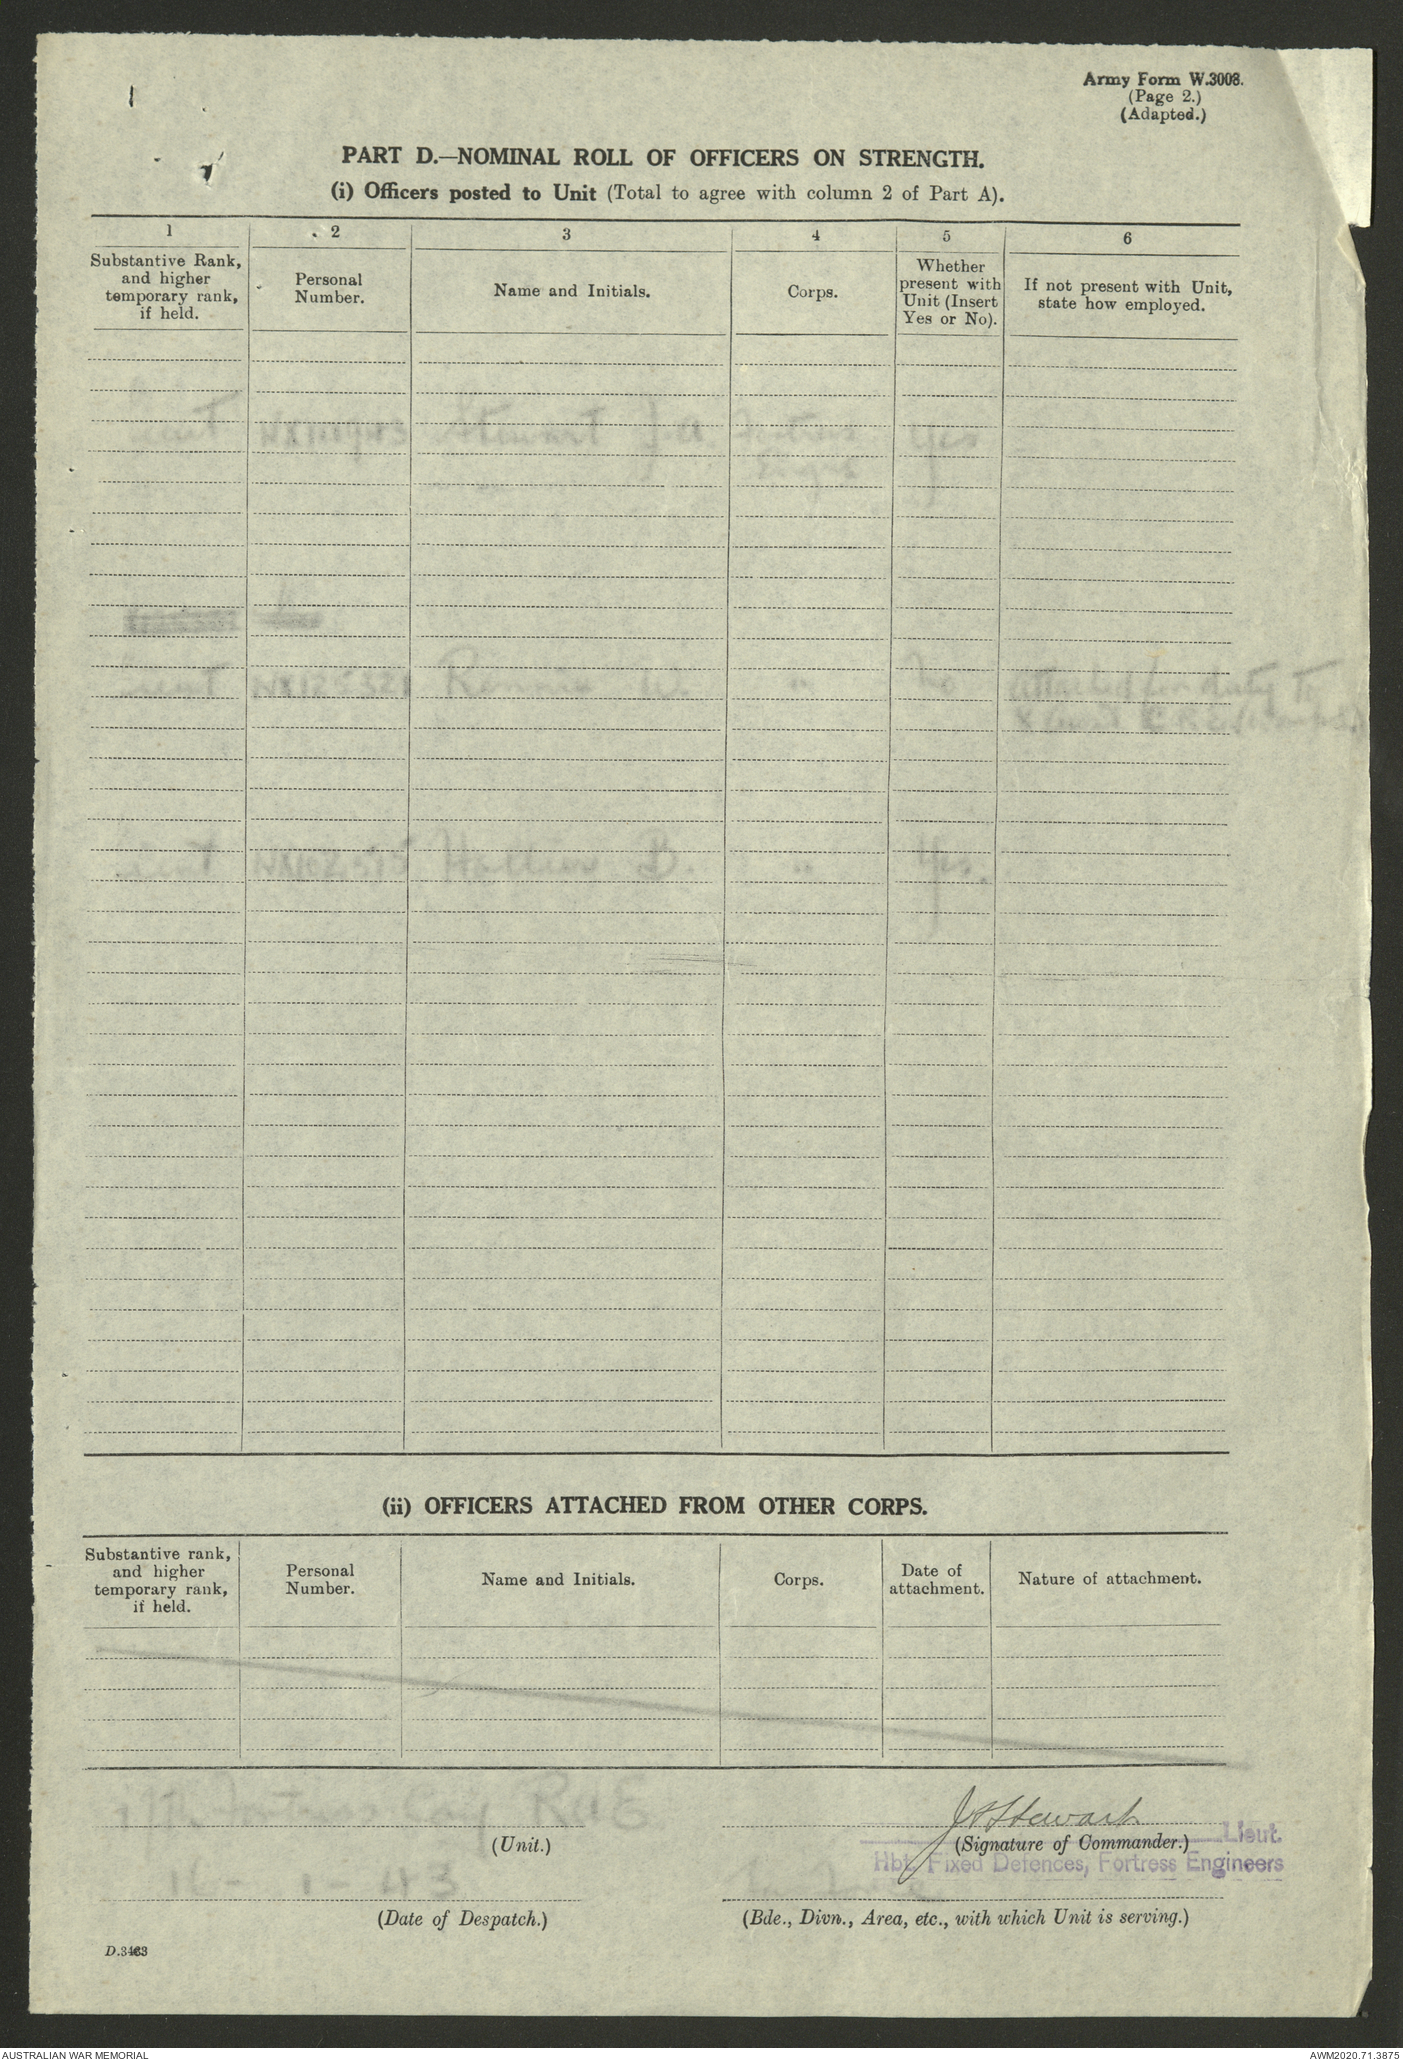 Army Form W.3008.
(Page 2.)
(Adapted.)
PART D.—NOMINAL ROLL OF OFFICERS ON STRENGTH.
(i) Officers posted to Unit (Total to agree with column 2 of Part A).
1 2 3 4 5 6
Substantive Rank, and higher temporary rank, if held.
Personal Number.
Name and Initials.
Corps.
Whether present with Unit (Insert Yes or No).
If not present with Unit, state how employed.
Lieut Stewart J.A. Fortress Engrs Yes
Lieut W. " No attached for duty to
Lieut B. " Yes.
(ii) OFFICERS ATTACHED FROM OTHER CORPS.
Substantive rank, and higher temporary rank, if held.
Personal Number.
Name and Initials.
Corps.
Date of attachment.
Nature of attachment.
Fortress Coy RAE
JAStewart
(Unit.)
(Signature of Commander.)
Lieut.
Hbt. Fixed Defences, Fortress Engineers
1 - 43
(Date of Despatch.)
(Bde., Divn., Area, etc., with which Unit is serving.)
D.3463
AUSTRALIAN WAR MEMORIAL
AWM2020.71.3875